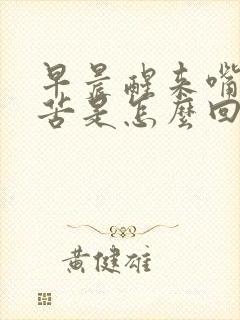 早晨醒来嘴
苦是怎麼回
黄健雄